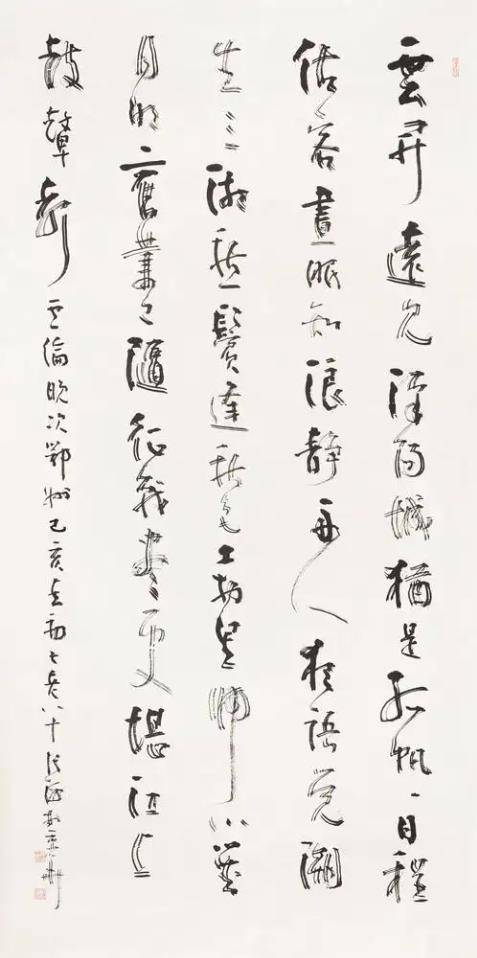 雲開遠見漢陽城猶是孤帆一日程
估客晝眠知浪靜舟人夜語覺潮
生三湘愁鬢逢秋色万里歸心對
月明舊業已隨征戰盡更堪江上
鼓鼙聲 倫晚次鄂州己亥 初七 八十